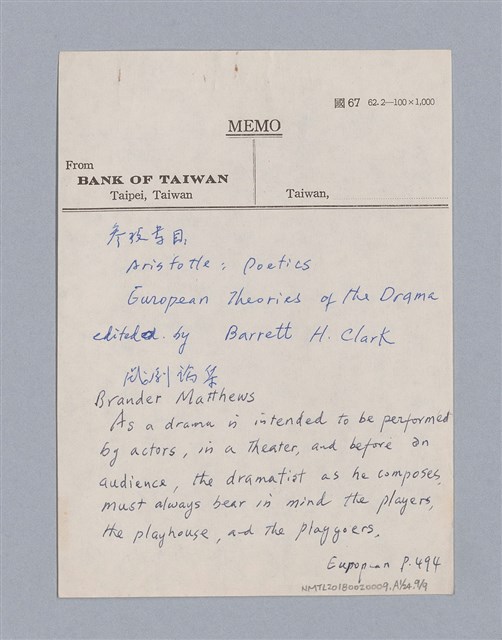 國 67 62. 2—100×1,000
MEMO
From
BANK OF TAIWAN
Taipei, Taiwan
Taiwan,
参考書目
Aristotle : Poetics
European Theories of the Drama
edited by Barrett H. Clark
戯劇論集
Brander Matthews
As a drama is intended to be performed
by actors, in a theater, and before an
audience, the dramatist as he composes,
must always bear in mind the players,
the playhouse, and the playgoers.
European P. 494
NMTL20180020009, A1/24. 9/9